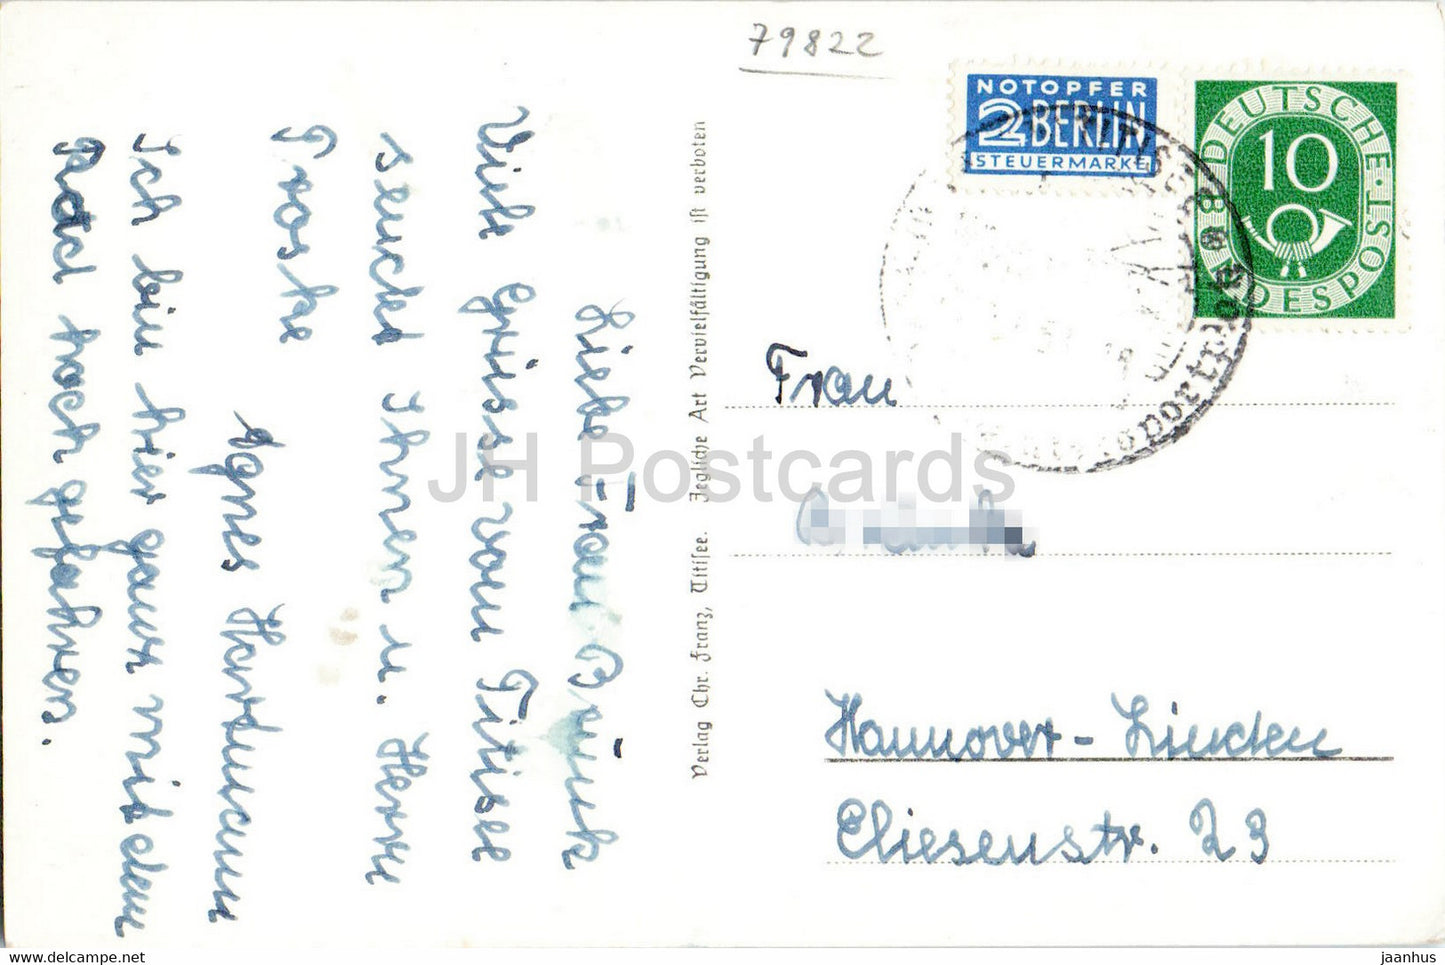 79822
NOTOPFER
2 BERLIN
STEUERMARKE
DEUTSCHE BUNDESPOST
10
TITISEE
Liebe Frau
Viele Grüsse vom Titisee
sendet Ihnen u. Herrn
Troske
Agnes Hartmann
Ich bin hier ganz mit dem
Rad hoch gefahren.
Verlag Chr. Franz, Titisee. Jegliche Art Vervielfältigung ist verboten
Frau
Hannover-Linden
Eliesenstr. 23
JH Postcards
jaanhus